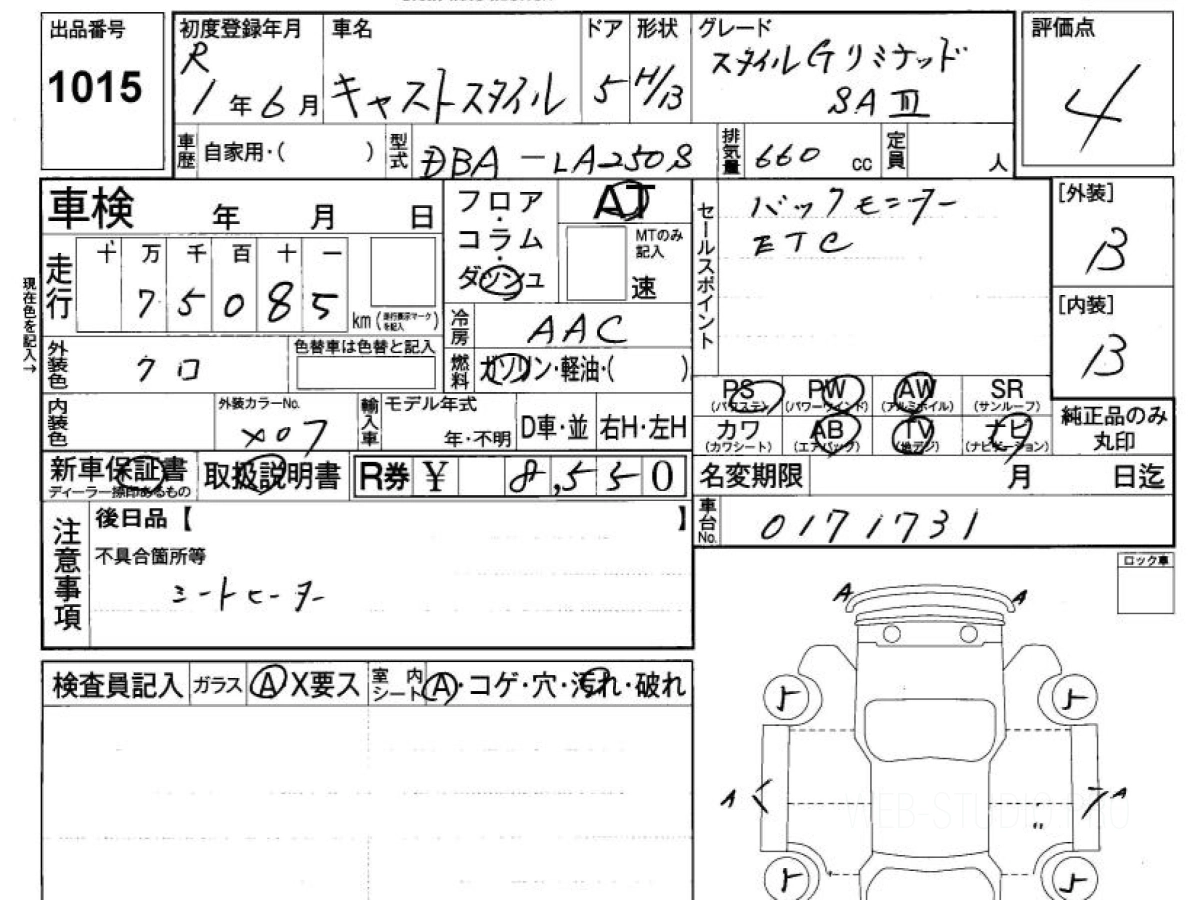 出品番号
1015
初度登録年月
R
1年6月
車名
キャストスタイル
ドア
5
形状
H/B
グレード
スタイルGリミテッド
SAⅢ
評価点
4
車歴
自家用・( )
型式
DBA-LA250S
排気量
660 cc
定員
人
車検 年 月 日
フロア・コラム・ダッシュ
AT
MTのみ記入
速
セールスポイント
バックモニター
ETC
[外装]
B
[内装]
B
現在色を記入→
走行
十 万 千 百 十 一
7 5 0 8 5
km(走行表示マークを記入)
冷房
AAC
外装色
クロ
色替車は色替と記入
燃料
ガソリン・軽油・( )
PS (パワステ)
PW (パワーウインド)
AW (アルミホイル)
SR (サンルーフ)
カワ (カワシート)
AB (エアバック)
TV (地デジ)
ナビ (ナビゲーション)
純正品のみ丸印
内装色
外装カラーNo.
X07
輸入車
モデル年式
年・不明
D車・並
右H・左H
新車保証書
ディーラー捺印あるもの
取扱説明書
R券 ¥ 8,550
名変期限 月 日迄
車台No.
0171731
注意事項
後日品【 】
不具合箇所等
シートヒーター
ロック車
検査員記入
ガラス
A X要ス
室内シート
A・コゲ・穴・汚れ・破れ
A
A
5
5
A
A
5
5
WEB-STUDIO.PRO